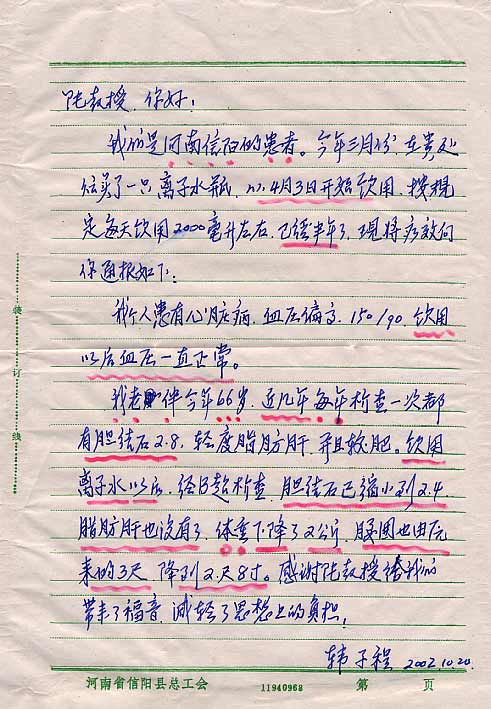 陆教授,你好:
我们是河南信阳的患者。今年三月份,在贵处
信买了一只离子水瓶,从4月3日开始饮用,按规
定每天饮用2000毫升左右,已经半年了,现将疗效向
你通报如下:
我个人患有心脏病,血压偏高,150/90,饮用
以后血压一直正常。
我老伴今年66岁,近几年每年检查一次都
有胆结石2.8,轻度脂肪肝,并且较肥。饮用
离子水以后,经B超检查,胆结石已缩小到2.4,
脂肪肝也没有了,体重下降了2公斤,腰围也由元
来的3尺降到2.尺8寸。感谢陆教授给我们
带来了福音,减轻了思想上的负担,
韩子程 2002.10.20.
装订线
河南省信阳县总工会 11940968 第 页